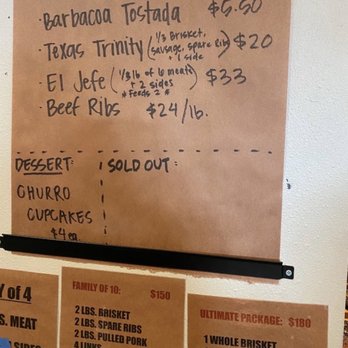 · Barbacoa Tostada $5.50
· Texas Trinity (1/3 Brisket, sausage, spare rib + 1 side) $20
· El Jefe (1/3 lb of 6 meats + 2 sides * Feeds 2 *) $33
· Beef Ribs $24/lb.
DESSERT:
CHURRO
CUPCAKES
$4 ea.
SOLD OUT:
Y of 4
S. MEAT
SIDES
FAMILY OF 10: $150
2 LBS. BRISKET
2 LBS. SPARE RIBS
2 LBS. PULLED PORK
4 LINKS
ULTIMATE PACKAGE: $180
1 WHOLE BRISKET